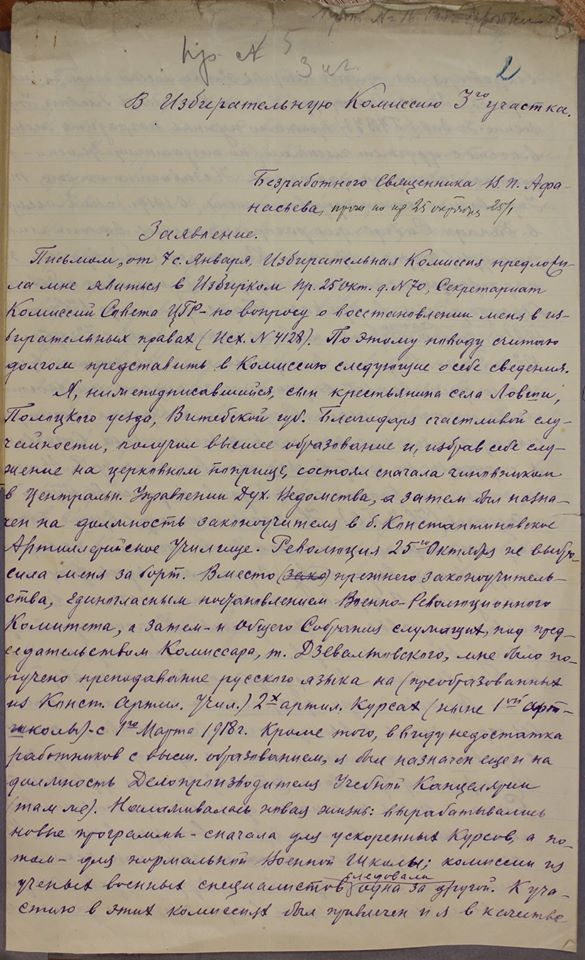 пр. № 5
3 уч.
2
В Избирательную Комиссию 3го участка.
Безработного Священника В. П. Афа-
насьева, прож по пр 25 октября 25/1
Заявление.
Письмом, от 7 с. Января, Избирательная Комиссия предложи-
ла мне явиться в Избирком пр. 25 Окт. д. № 70, Секретариат
Комиссий Совета ЦГР - по вопросу о восстановлении меня в из-
бирательных правах (Исх. № 4128). По этому поводу считаю
долгом представить в Комиссию следующие о себе сведения.
Я, нижеподписавшийся, сын крестьянина села
Полоцкого уезда, Витебской губ. Благодаря счастливой слу-
чайности, получил высшее образование и, избрав себе слу-
жение на церковном поприще, состоял сначала чиновником
в Центральн. Управлении Дух. Ведомства, а затем был назна-
чен на должность законоучителя в б. Константиновское
Артиллерийское Училище. Революция 25го Октября не выбро-
сила меня за борт. Вместо (зако) прежнего законоучитель-
ства, единогласным постановлением Военно-Революционного
Комитета, а затем - и Общего Собрания служащих, под пред-
седательством Комиссара, т. Дзевалтовского, мне было по-
ручено преподавание русского языка на (преобразованных
из Конст. Артил. Учил.) 2х артил. Курсах (ныне 1ой арт-
школы) - с 1го Марта 1918 г. Кроме того, в виду недостатка
работников с высш. образованием, я был назначен еще и на
должность Делопроизводителя Учебной Канцелярии
(там же). Налаживалась новая жизнь: вырабатывались
новые программы - сначала для ускоренных Курсов, а по-
том - для нормальной Военной Школы; комиссии из
ученых военных специалистов следовали одна за другой. К уча-
стию в этих комиссиях был привлечен и я в качестве